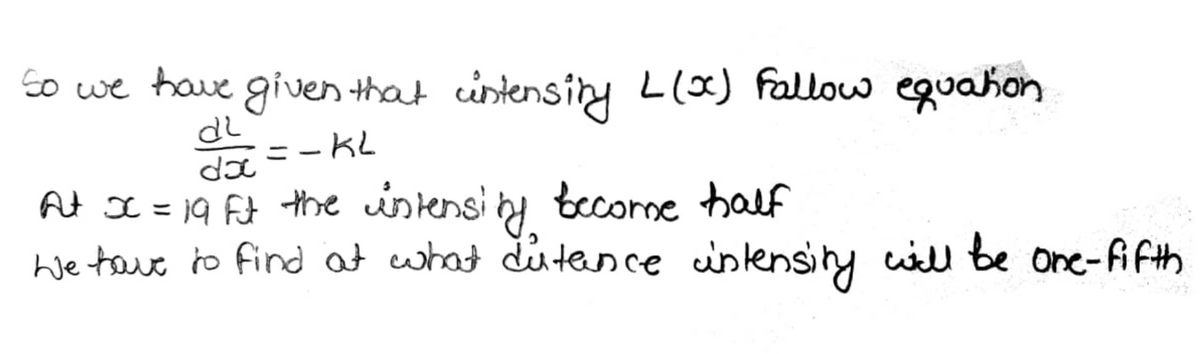 So we have given that intensity L(x) Fallow equation
dL/dx = -KL
At x = 19 Ft the intensity become half
We have to find at what distance intensity will be one-fifth